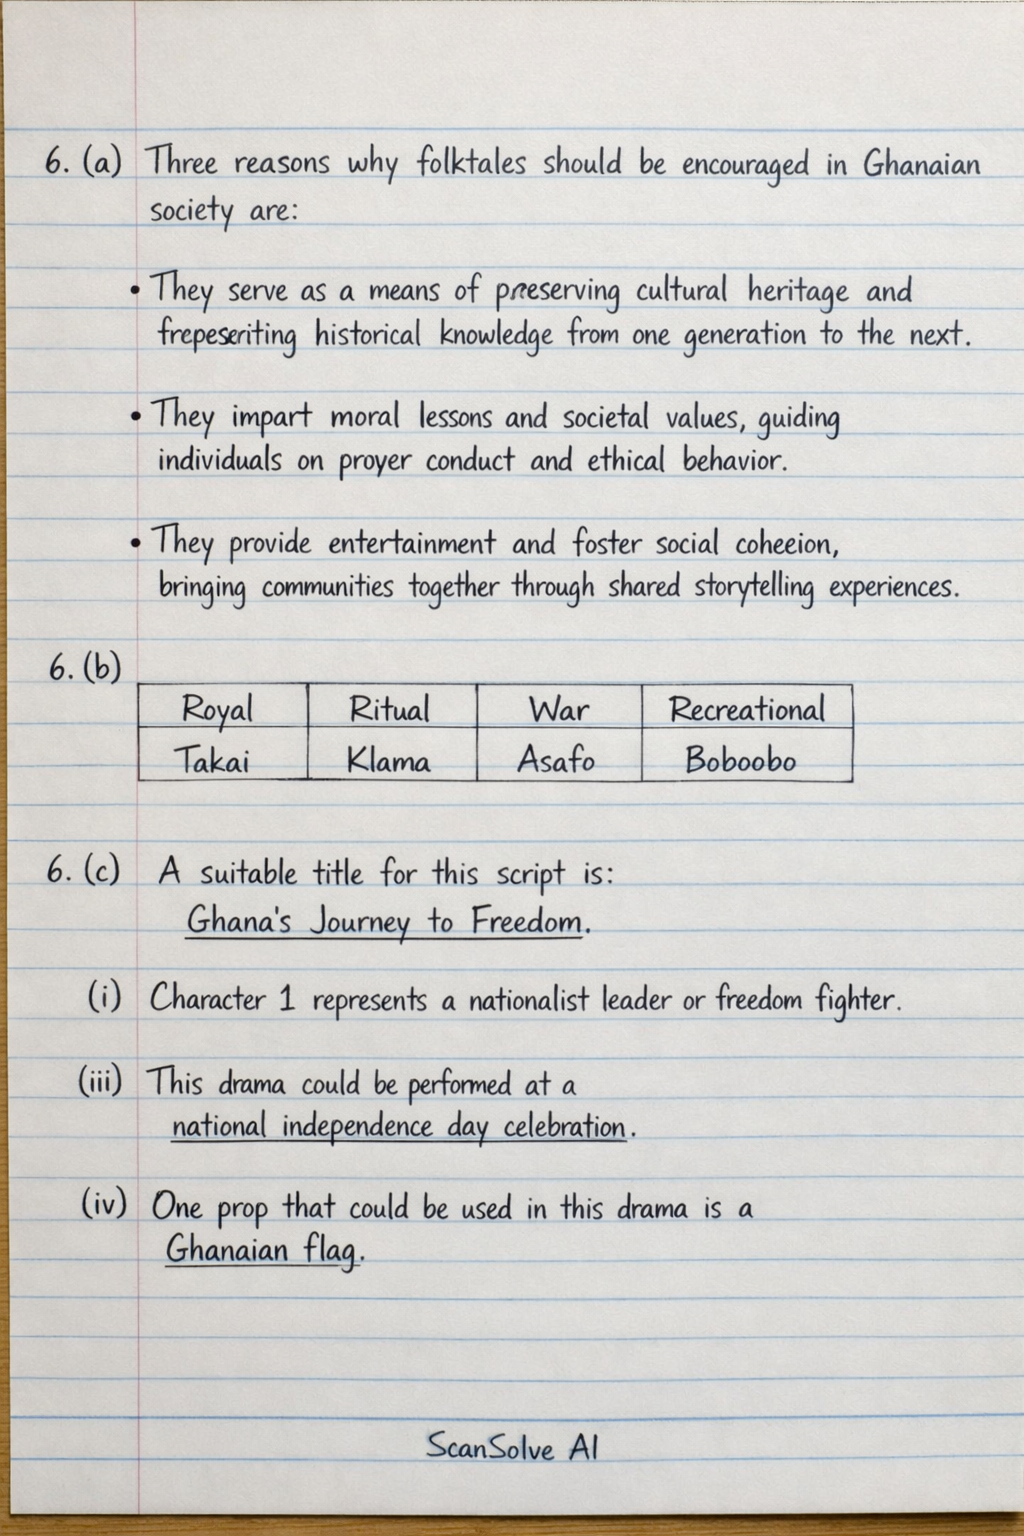 6. (a) Three reasons why folktales should be encouraged in Ghanaian
society are:
• They serve as a means of preserving cultural heritage and
historical knowledge from one generation to the next.
• They impart moral lessons and societal values, guiding
individuals on proyer conduct and ethical behavior.
• They provide entertainment and foster social coheeion,
bringing communities together through shared storytelling experiences.
6. (b)
Royal Ritual War Recreational
Takai Klama Asafo Boboobo
6. (c) A suitable title for this script is:
Ghana's Journey to Freedom.
(i) Character 1 represents a nationalist leader or freedom fighter.
(iii) This drama could be performed at a
national independence day celebration.
(iv) One prop that could be used in this drama is a
Ghanaian flag.
ScanSolve AI